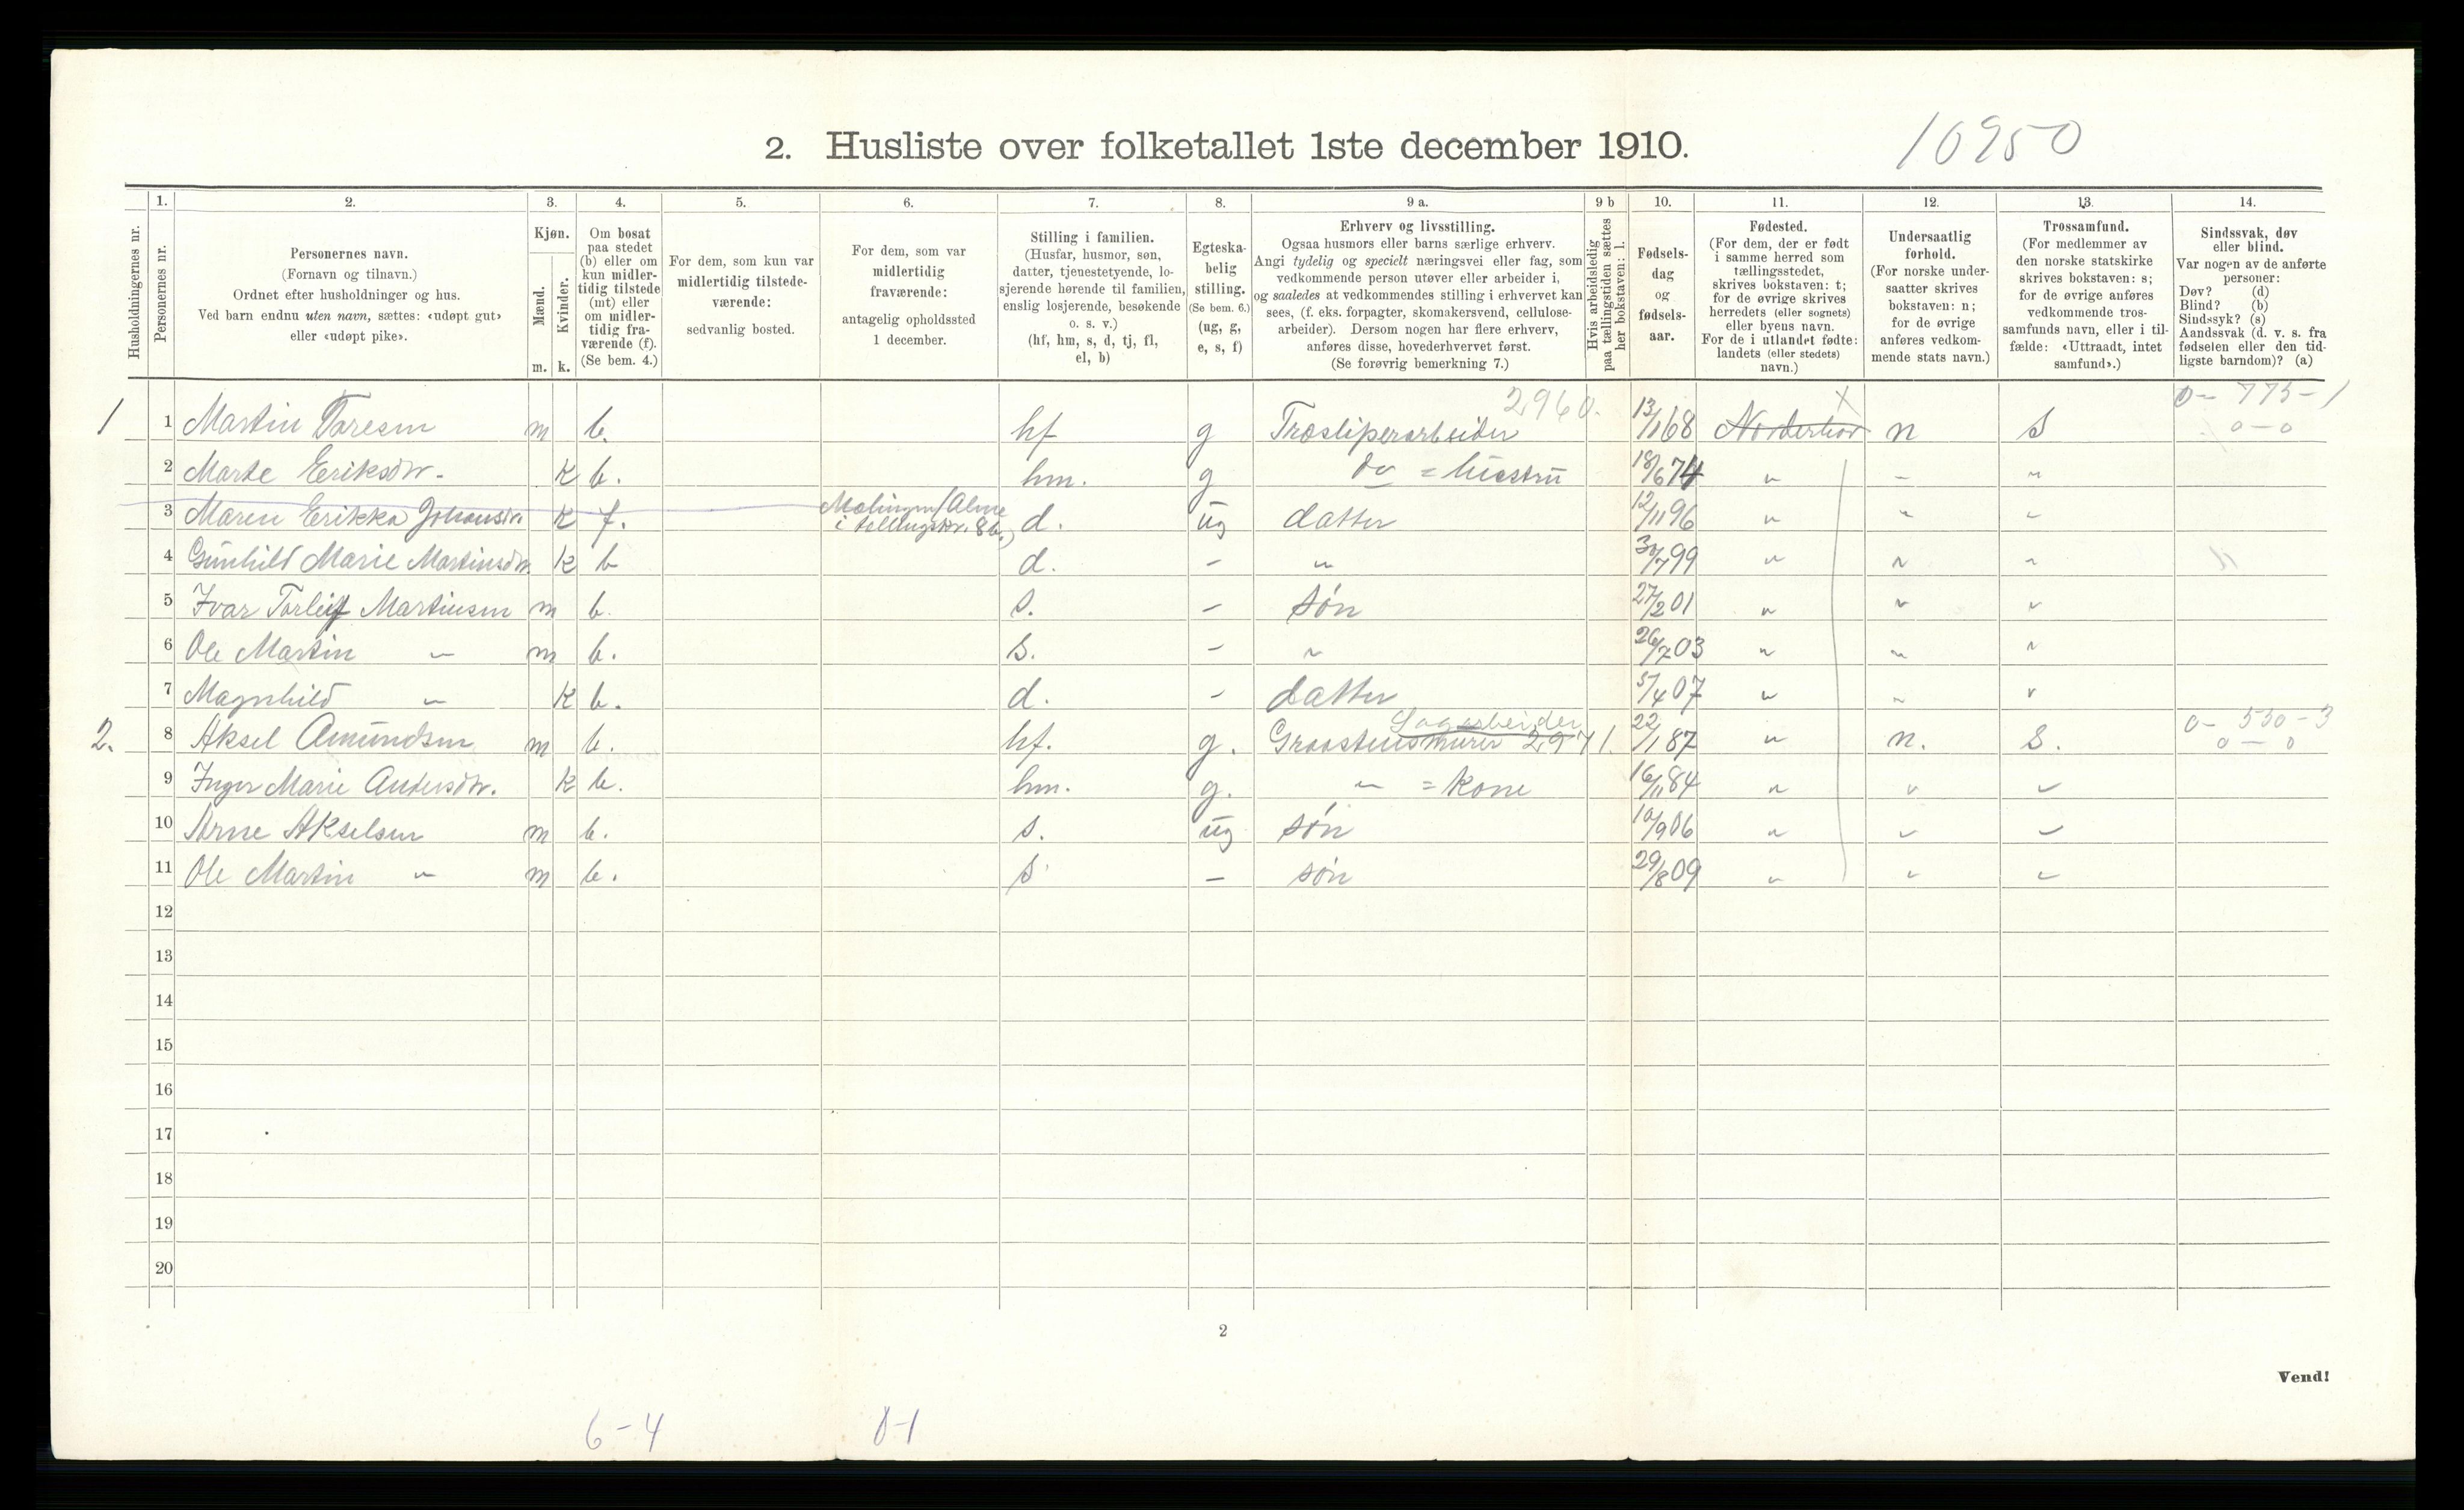 2. Husliste over folketallet 1ste december 1910. 10950
Husholdningernes nr.
1. Personernes nr.
2. Personernes navn.
(Fornavn og tilnavn.)
Ordnet efter husholdninger og hus.
Ved barn endnu uten navn, sættes: «udøpt gut»
eller «udøpt pike».
3. Kjøn.
Mænd. Kvinder.
m. k.
4. Om bosat
paa stedet
(b) eller om
kun midler-
tidig tilstede
(mt) eller
om midler-
tidig fra-
værende (f).
(Se bem. 4.)
5. For dem, som kun var
midlertidig tilstede-
værende:
sedvanlig bosted.
6. For dem, som var
midlertidig
fraværende:
antagelig opholdssted
1 december.
7. Stilling i familien.
(Husfar, husmor, søn,
datter, tjenestetyende, lo-
sjerende hørende til familien,
enslig losjerende, besøkende
o. s. v.)
(hf, hm, s, d, tj, fl,
el, b)
8. Egteska-
belig
stilling.
(Se bem. 6.)
(ug, g,
e, s, f)
9 a. Erhverv og livsstilling.
Ogsaa husmors eller barns særlige erhverv.
Angi tydelig og specielt næringsvei eller fag, som
vedkommende person utøver eller arbeider i,
og saaledes at vedkommendes stilling i erhvervet kan
sees, (f. eks. forpagter, skomakersvend, cellulose-
arbeider). Dersom nogen har flere erhverv,
anføres disse, hovederhvervet først.
(Se forøvrig bemerkning 7.)
9 b Hvis arbeidsledig
paa tællingstiden sættes
her bokstaven: l.
10. Fødsels-
dag
og
fødsels-
aar.
11. Fødested.
(For dem, der er født
i samme herred som
tællingsstedet,
skrives bokstaven: t;
for de øvrige skrives
herredets (eller sognets)
eller byens navn.
For de i utlandet fødte:
landets (eller stedets)
navn.)
12. Undersaatlig
forhold.
(For norske under-
saatter skrives
bokstaven: n;
for de øvrige
anføres vedkom-
mende stats navn.)
13. Trossamfund.
(For medlemmer av
den norske statskirke
skrives bokstaven: s;
for de øvrige anføres
vedkommende tros-
samfunds navn, eller i til-
fælde: «Uttraadt, intet
samfund».)
14. Sindssvak, døv
eller blind.
Var nogen av de anførte
personer:
Døv? (d)
Blind? (b)
Sindssyk? (s)
Aandssvak (d. v. s. fra
fødselen eller den tid-
ligste barndom)? (a)
2960. X 0 – 775 – 1
1 1 Martin Toresen m b. hf g Træsliperarbeider 13/1 68 Norderhov n s 0 – 0
2 Marte Eriksdtr. k b. hm. g do = hustru 18/6 74 " " "
3 Maren Erikka Johansdtr. k f. i tellingskr. 8 d. ug datter 12/11 96 " " "
4 Gunhild Marie Martinsdtr. k b d. – " 30/7 99 " " "
5 Ivar Torleif Martinsen m b. s. – søn 27/2 01 " " "
6 Ole Martin " m b. s. – " 26/7 03 " " "
7 Magnhild " k b. d. – datter 5/4 07 " " "
Sagarbeider 0 – 530 – 3
2. 8 Aksel Amundsen m b. hf. g. Graastensmurer 2971. 22/1 87 " n. s. 0 – 0
9 Inger Marie Andersdtr. k b. hm. g. " = kone 16/11 84 " " "
10 Arne Akselsen m b. s. ug søn 10/9 06 " " "
11 Ole Martin " m b. s – søn 29/8 09 " " "
12
13
14
15
16
17
18
19
20
2
Vend!
6 – 4 0–1